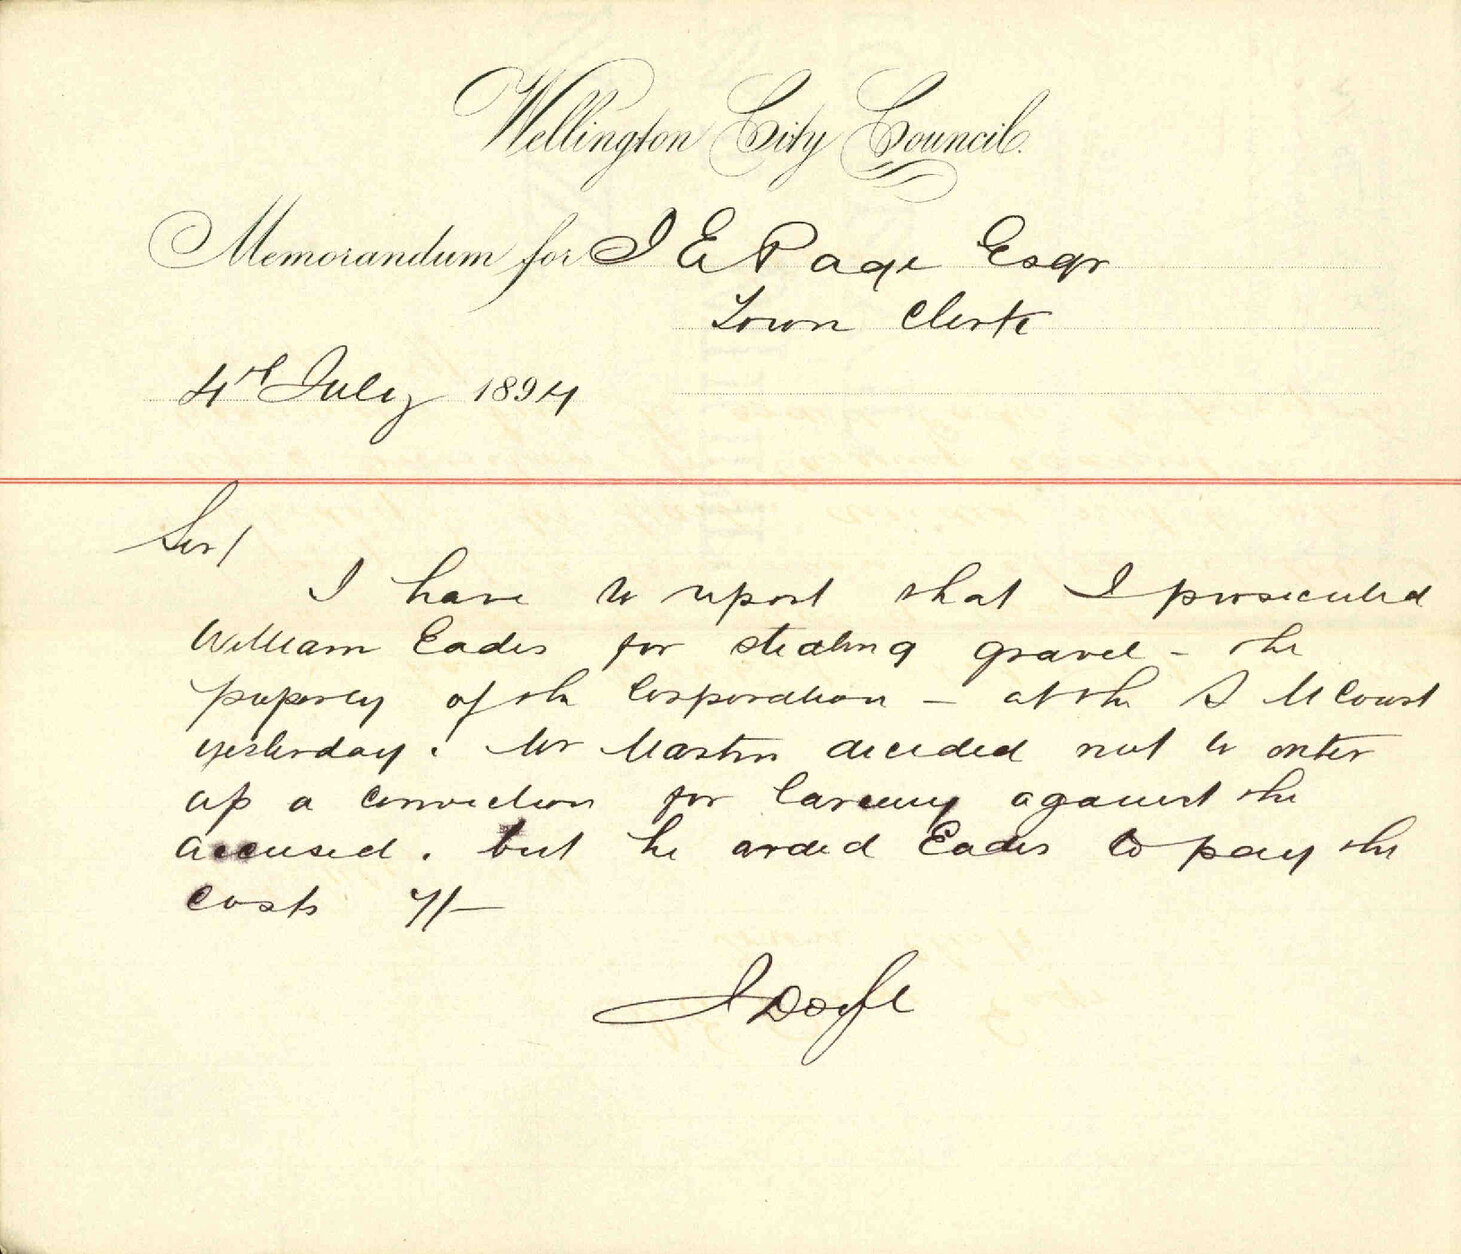 Wellington City Council.
Memorandum for J E Page Esqr
Town Clerk
4th July 1894
Sir/
I have to report that I prosecuted
William Eades for stealing gravel - the
property of the Corporation - at the S M Court
yesterday. Mr Martin decided not to enter
up a conviction for larceny against the
accused. but he orded Eades to pay the
costs 7/-
J Doyle